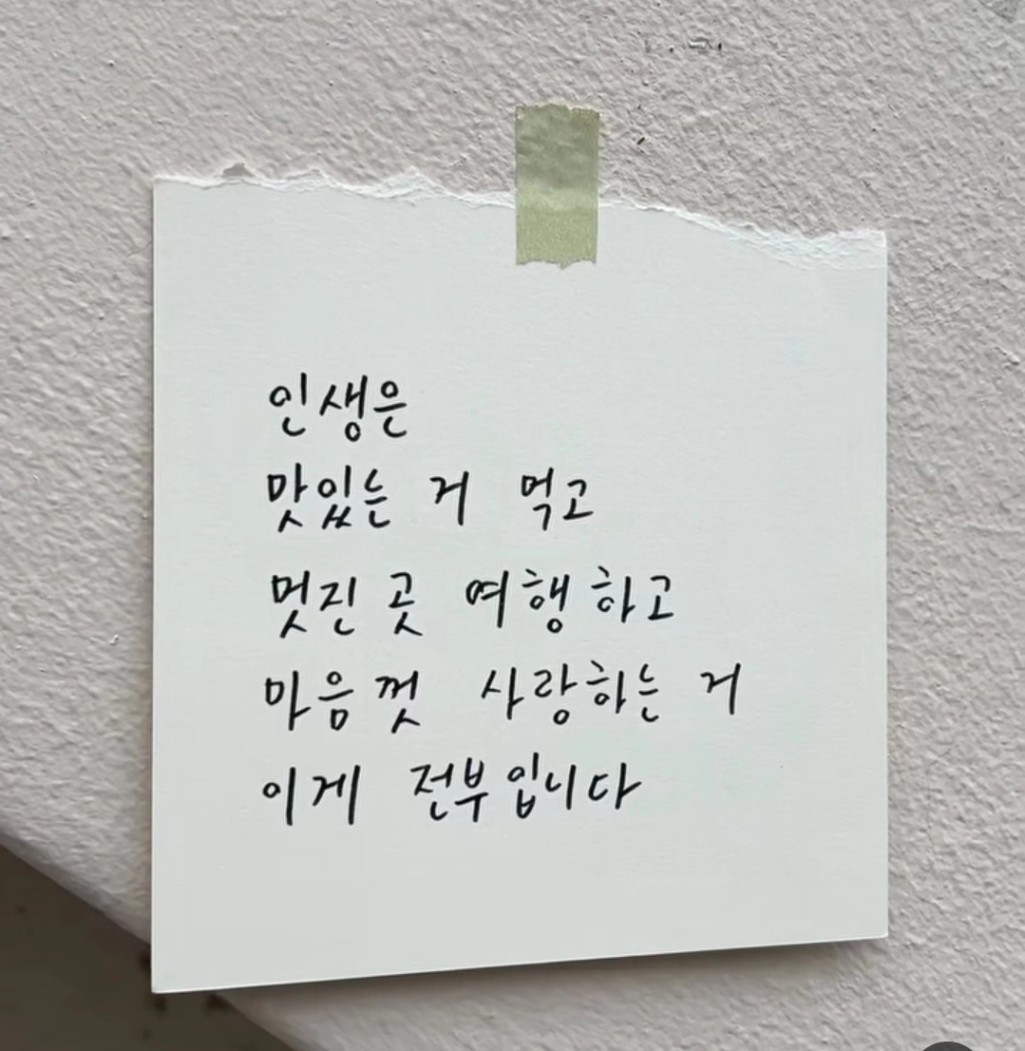 인생은
맛있는 거 먹고
멋진 곳 여행하고
마음껏 사랑하는 거
이게 전부입니다